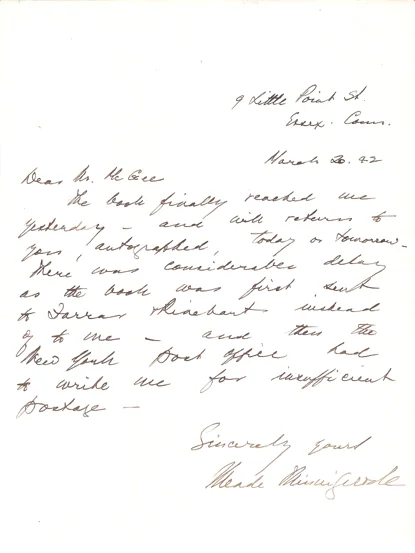 9 Little Point St.
Essex. Conn.
March 20. 42
Dear Mr. McGee
The book finally reached me
yesterday – and will return to
you, autographed, today or tomorrow –
There was considerable delay
as the book was first sent
to Farrar & Rinehart instead
of to me – and then the
New York Post Office had
to write me for insufficient
postage –
Sincerely yours
Meade Minnigerode